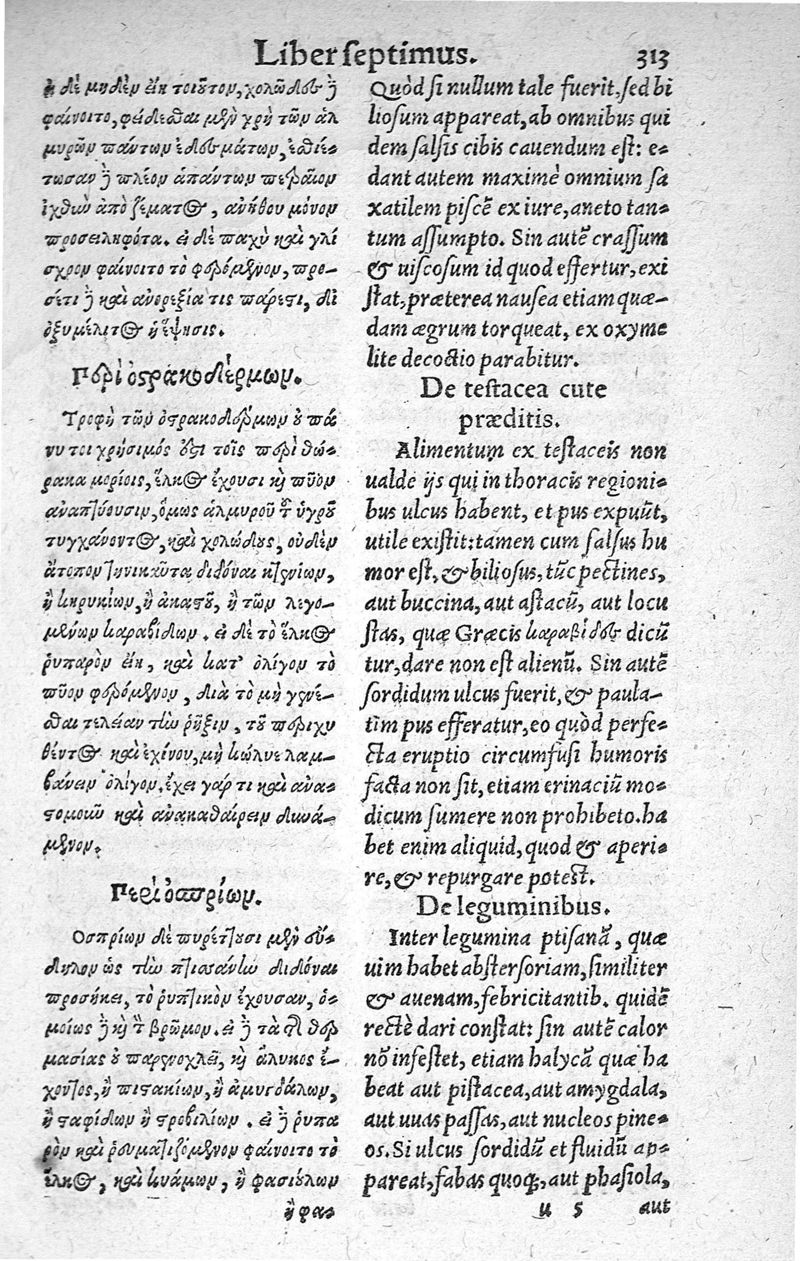 Liber septimus. 313
ἢ δὲ μηδὲν εἴη τοιοῦτον, χολῶδες ϳ
φαίνοιτο, φείδεσθαι μὲν χρὴ τῶν ἁλ
μυρῶν πάντων ἐδεσμάτων, ἐσθιέ-
τωσαν ϳ πλέον ἁπάντων πετραῖον
ἰχθὺν ἀπὸ ζέματος, ἀνήθου μόνον
προσειληφότα. εἰ δὲ παχὺ καὶ γλί
σχρον φαίνοιτο τὸ φερόμενον, προ-
σέτι ϳ καὶ ἀνορεξία τις πάρεστι, δι
ὀξυμέλιτος ἡ ἕψησις.
Περὶ ὀστρακοδέρμων.
Τροφὴ τῶν ὀστρακοδέρμων οὐ πά
νυ τοι χρήσιμός ἐστι τοῖς περὶ θώ-
ρακα μορίοις, ἕλκος ἔχουσι κὴ πῦον
ἀναπτύουσιν, ὅμως ἁλμυροῦ τοῦ ὑγροῦ
τυγχάνοντος, καὶ χολώδους, οὐδὲν
ἄτοπον τηνικαῦτα διδόναι κτενίων,
ἢ κηρυκίων, ἢ ἀκατοῦ, ἢ τῶν λεγο-
μένων καραβίδων. εἰ δὲ τὸ ἕλκος
ῥυπαρὸν εἴη, καὶ κατ' ὀλίγον τὸ
πῦον φερόμενον, διὰ τὸ μὴ γενέ-
σθαι τελείαν τὴν ῥῆξιν, τοῦ περιχυ
θέντος καὶ ἐχίνου, μὴ κώλυε λαμ-
βάνειν ὀλίγον, ἔχει γάρ τι καὶ ἀνα-
στομοῦν καὶ ἀνακαθαίρειν δυνά-
μενον.
Περὶ ὀσπρίων.
Οσπρίων δὲ πυρέττουσι μὲν εὔ-
δηλον ὡς τὴν πτισάνην διδόναι
προσήκει, τὸ ῥυπτικὸν ἔχουσαν, ὁ-
μοίως ϳ κὴ τὸν βρῶμον. εἰ ϳ τὰ τῆς θερ
μασίας οὐ παρενοχλεῖ, κὴ ἄλυκος ἔ-
χοντος, ἢ πιστακίων, ἢ ἀμυγδάλων,
ἢ σταφίδων ἢ στροβιλίων. εἰ ϳ ῥυπα
ρὸν καὶ ῥευματιζόμενον φαίνοιτο τὸ
ἕλκος, καὶ κυάμων, ἢ φασιόλων
ἢ φα-
Quòd si nullum tale fuerit, sed bi
liosum appareat, ab omnibus qui
dem salsis cibis cauendum est: e-
dant autem maximè omnium sa
xatilem piscē ex iure, aneto tan-
tum assumpto. Sin autē crassum
& uiscosum id quod effertur, exi
stat, præterea nausea etiam quæ-
dam ægrum torqueat, ex oxyme
lite decoctio parabitur.
De testacea cute
præditis.
Alimentum ex testaceis non
ualde ijs qui in thoracis regioni-
bus ulcus habent, et pus expuūt,
utile existit: tamen cum salsus hu
mor est, & biliosus, tūc pectines,
aut buccina, aut astacū, aut locu
stas, quæ Græcis καραβίδες dicū
tur, dare non est alienū. Sin autē
sordidum ulcus fuerit, & paula-
tim pus efferatur, eo quòd perfe-
cta eruptio circumfusi humoris
facta non sit, etiam erinaciū mo-
dicum sumere non prohibeto. ha
bet enim aliquid, quod & aperi-
re, & repurgare potest.
De leguminibus.
Inter legumina ptisanā, quæ
uim habet abstersoriam, similiter
& auenam, febricitantib. quidē
rectè dari constat: sin autē calor
nō infestet, etiam halycā quæ ha
beat aut pistacea, aut amygdala,
aut uuas passas, aut nucleos pine-
os. Si ulcus sordidū et fluidū ap-
pareat, fabas quoq;, aut phasiola,
u 5 aut